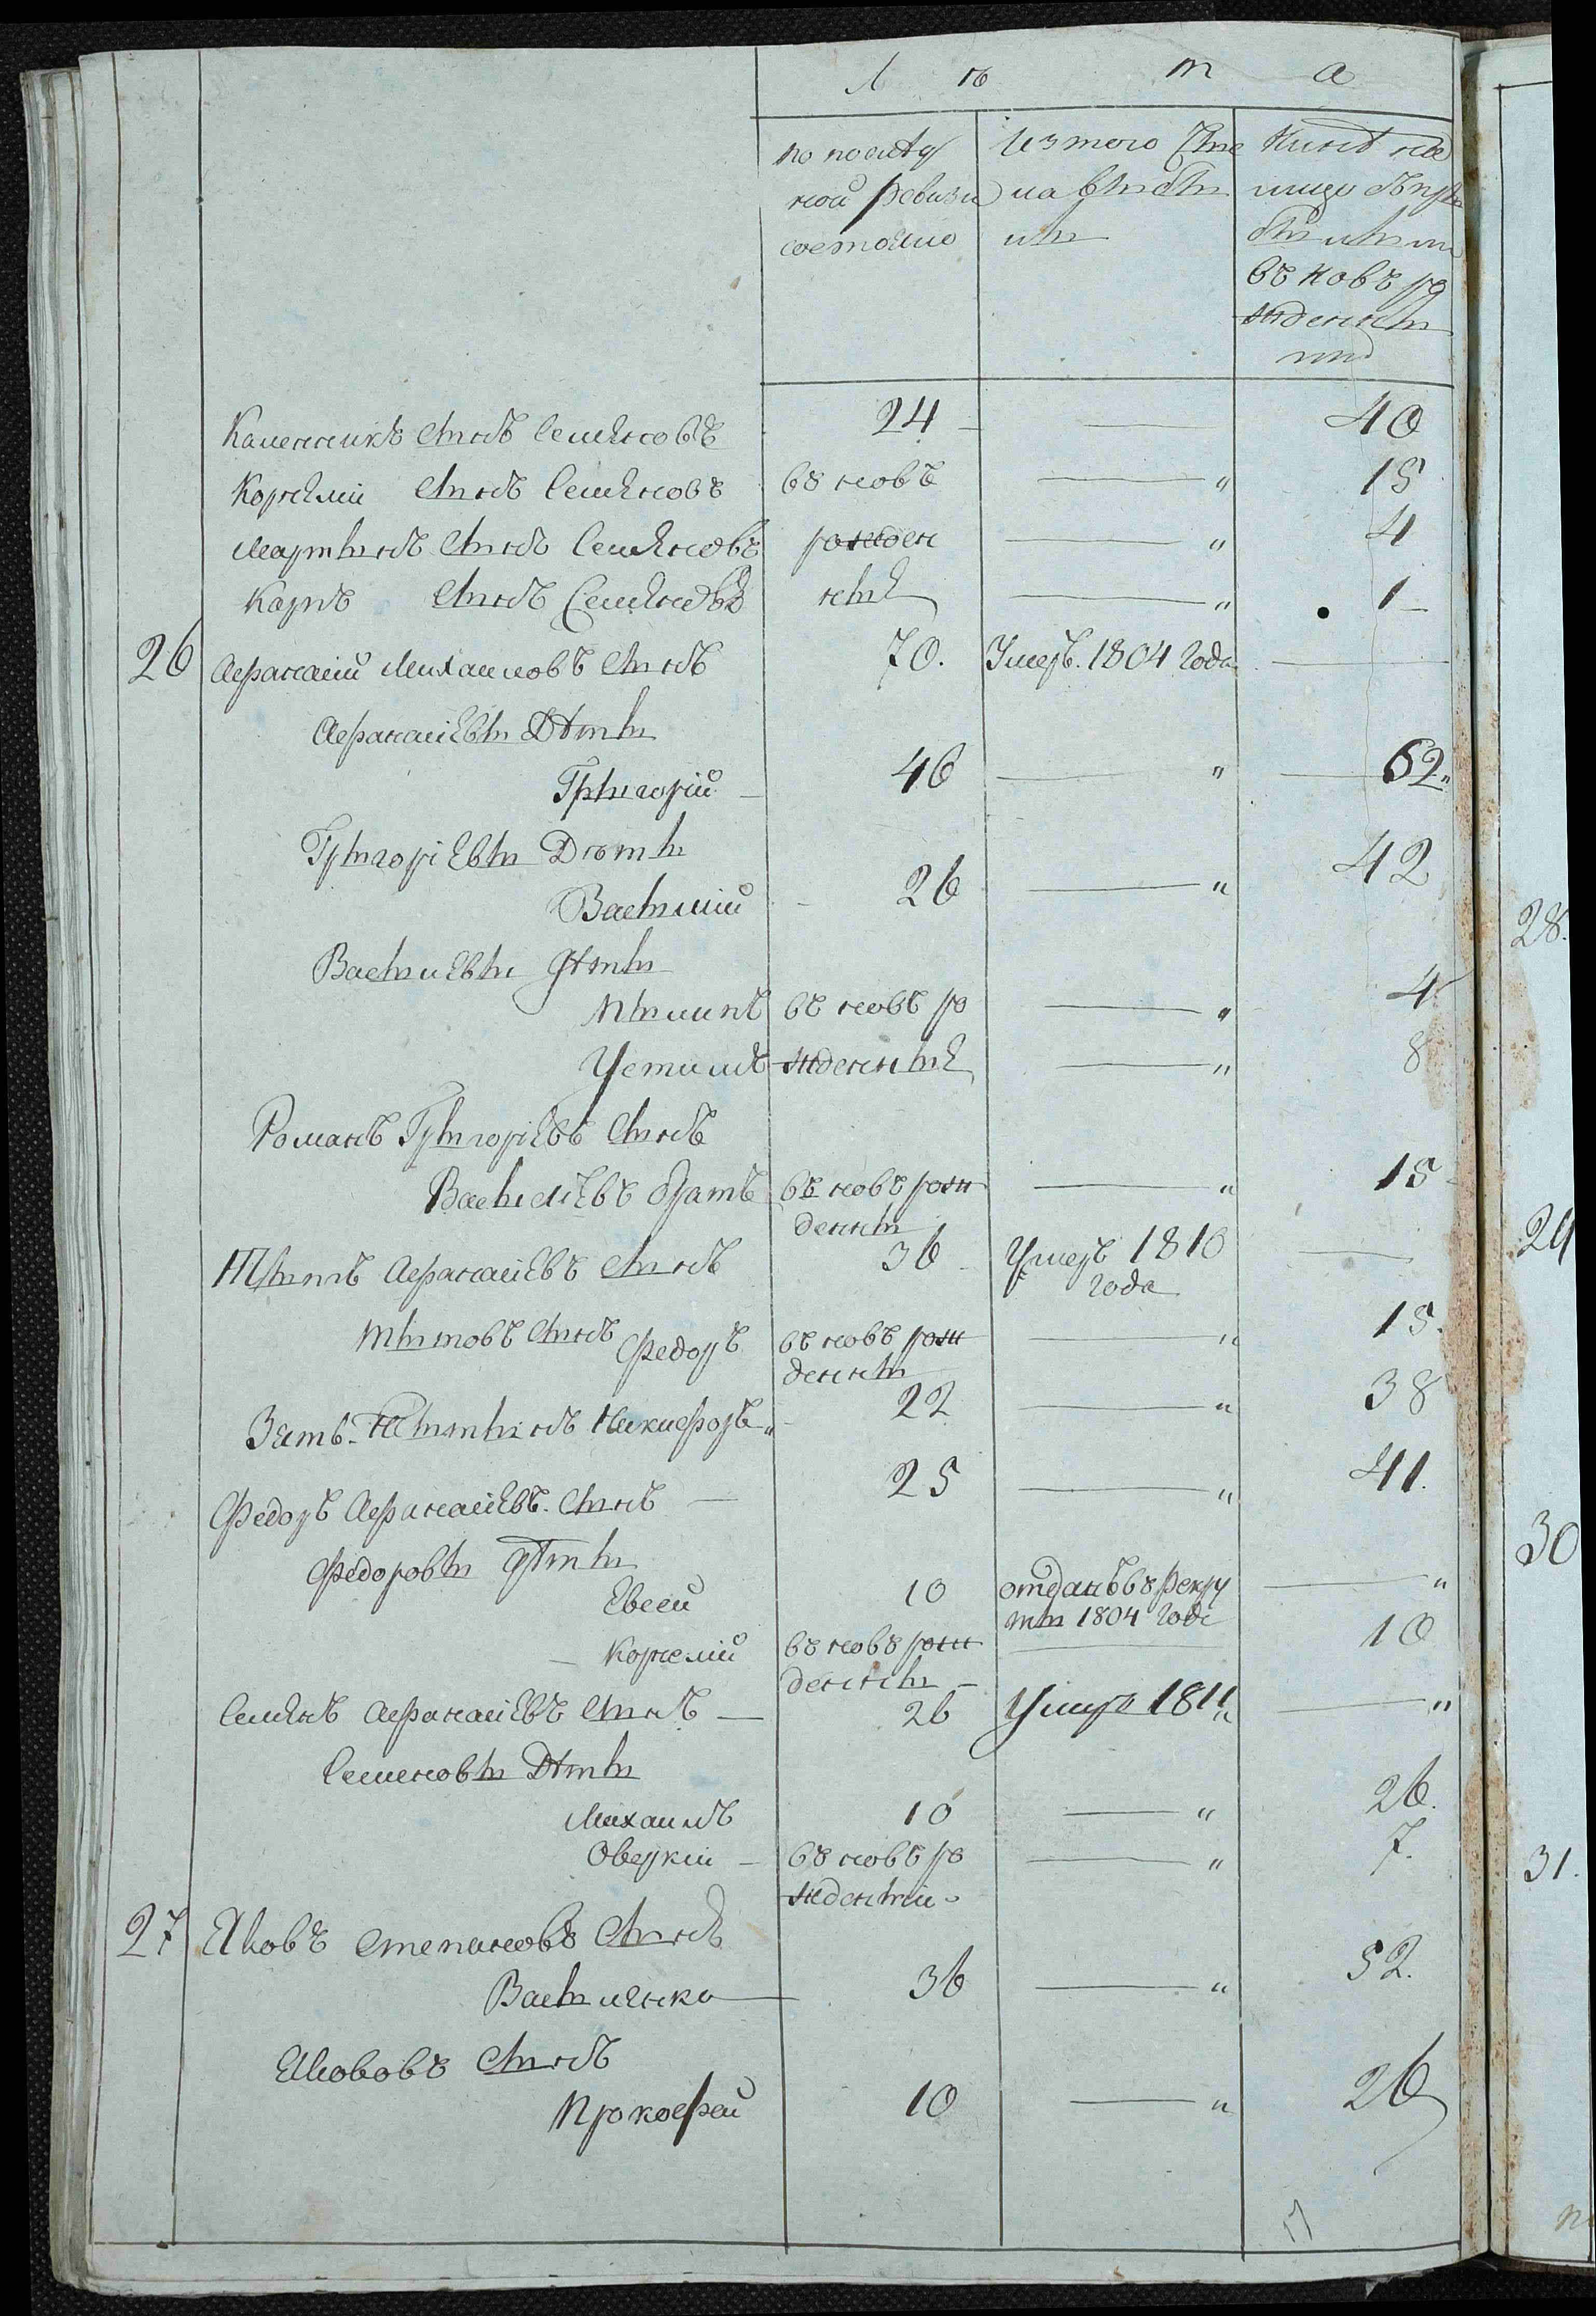 Л ѣ т а
по послѣд
ной ревизи
состояло
Изъ того Чис
ла выбы
ло
Ныне на
лицо
въ новъ ро
жденны
ми
Калинникъ Сынъ Семѣновъ 24 — 40
Корнѣлий Сынъ Семѣновъ въ новъ — „ 15
Мартынъ Сынъ Семѣновъ рожден — „ 4
Карпъ Сынъ Семѣновъ ныѣ — „ 1
26 Афанасий Михаиловъ Сынъ 70. Умеръ. 1804 года —
Афанасиевы Дѣты
Грыгорий 46 — „ 62„
Грыгориевы Дѣты
Васылий 26 — „ 42
Васылиевы Дѣты
Пылипъ въ новъ ро — „ 4
Устимъ жденныѣ — „ 8
Романъ Грыгориевъ Сынъ
Васылиевъ братъ въ новъ рож — „ 15
денны
Тытъ Афанасиевъ Сынъ 36 Умеръ 1810 —
года
Тытовъ Сынъ Федоръ въ новъ рож — „ 15.
денны
Зять Никифоръ„ 22 — „ 38
Федоръ Афанасиевъ. Сынъ — 25 — „ 41.
Федоровы Дѣты
Евсей 10 отданъ въ рекру — „
ты 1804 Годе
Корнелий въ новъ рож — 10
денны
Семѣнъ Афанасиевъ Сынъ — 26 Умеръ 1811„ — „
Семеновы Дѣты
Михаилъ 10 — „ 26.
Оверкий — въ новъ ро — „ 7.
жденныи
27 Яковъ Степановъ Сынъ
Васылянко — 36 — „ 52.
Яковъвъ Сынъ
Прокофей 10 — „ 26
28.
29
30
31.